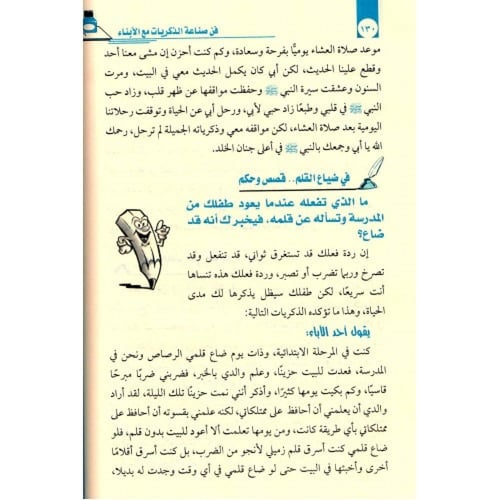 ١٣٠
فن صناعة الذكريات مع الأبناء
موعد صلاة العشاء يوميًّا بفرحة وسعادة، وكم كنت أحزن إن مشى معنا أحد
وقطع علينا الحديث، لكن أبي كان يكمل الحديث معي في البيت، ومرت
السنون وعشقت سيرة النبي ﷺ وحفظت مواقفها عن ظهر قلب، وزاد حب
النبي ﷺ في قلبي وطبعًا زاد حبي لأبي، ورحل أبي عن الحياة وتوقفت رحلاتنا
اليومية بعد صلاة العشاء، لكن مواقفه معي وذكرياته الجميلة لم ترحل، رحمك
الله يا أبي وجمعك بالنبي ﷺ في أعلى جنان الخلد.
في ضياع القلم.. قصص وحكم
ما الذي تفعله عندما يعود طفلك من
المدرسة وتسأله عن قلمه، فيخبرك أنه قد
ضاع؟
إن ردة فعلك قد تستغرق ثواني، قد تنفعل وقد
تصرخ وربما تضرب أو تصبر، وردة فعلك هذه تنساها
أنت سريعًا، لكن طفلك سيظل يذكرها لك مدى
الحياة، وهذا ما تؤكده الذكريات التالية:
يقول أحد الآباء:
كنت في المرحلة الابتدائية، وذات يوم ضاع قلمي الرصاص ونحن في
المدرسة، فعدت للبيت حزينًا، وعلم والدي بالخبر، فضربني ضربًا مبرحًا
قاسيًا، وكم بكيت يومها كثيرًا، وأذكر أنني نمت حزينًا تلك الليلة، لقد أراد
والدي أن يعلمني أن أحافظ على ممتلكاتي، لكنه علمني بقسوته أن أحافظ على
ممتلكاتي بأي طريقة كانت، ومن يومها تعلمت ألا أعود للبيت بدون قلم، فلو
ضاع قلمي كنت أسرق قلم زميلي لأنجو من الضرب، بل كنت أسرق أقلامًا
أخرى وأخبئها في البيت حتى لو ضاع قلمي في أي وقت وجدت له بديلا،